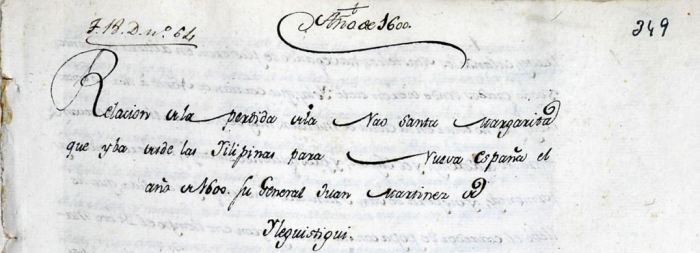 F. R. D. nº. 64
Año de 1600.
349
Relacion de la perdida de la Nao Santa Margarita
que yba desde las Filipinas para Nueva España el
año de 1600. su General Juan Martinez de
Yleguistigui.